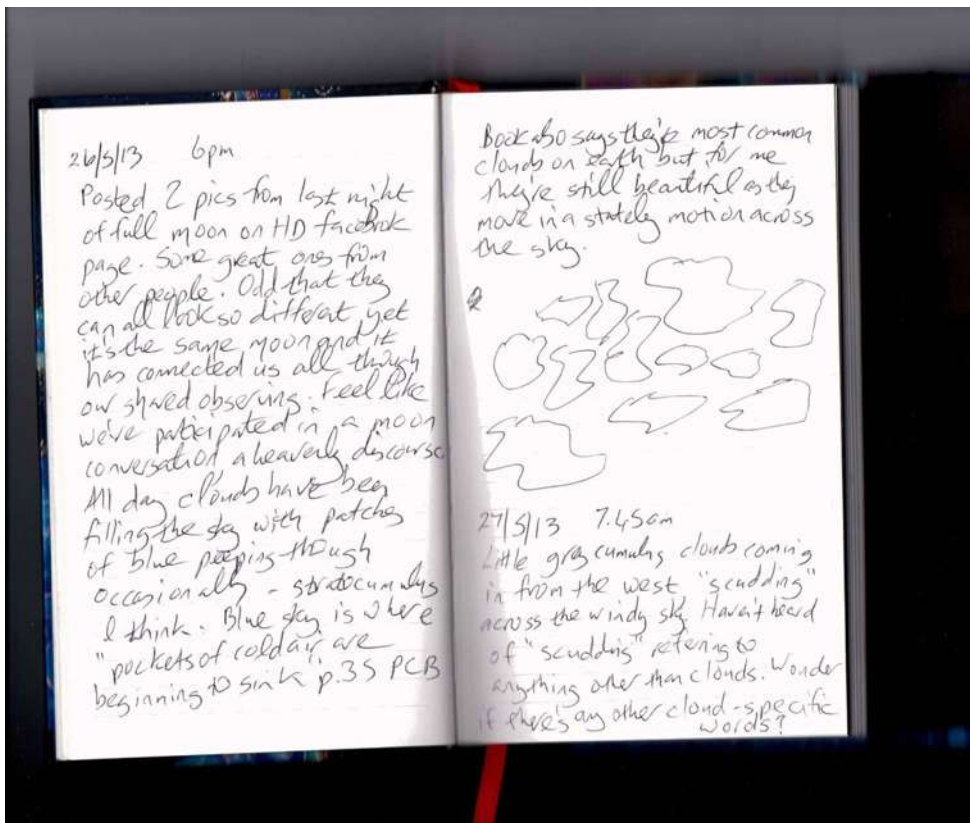 26/5/13 6pm
Posted 2 pics from last night
of full moon on HD facebook
page. Some great ones from
other people. Odd that they
can all look so different yet
it's the same moon and it
has connected us all though
our shared observing. Feel like
we've participated in a moon
conversation a heavenly discourse
All day clouds have been
filling the sky with patches
of blue peeping though
occasionally - stratocumulus
I think. Blue sky is where
"pockets of cold air are
beginning to sink" p.35 PCB
Book also says they're most common
clouds on earth but for me
they're still beautiful as they
move in a stately motion across
the sky.
27/5/13 7.45am
Little grey cumulus clouds coming
in from the west, "scudding"
across the windy sky. Haven't heard
of "scudding" refering to
anything other than clouds. Wonder
if there's any other cloud-specific
words?